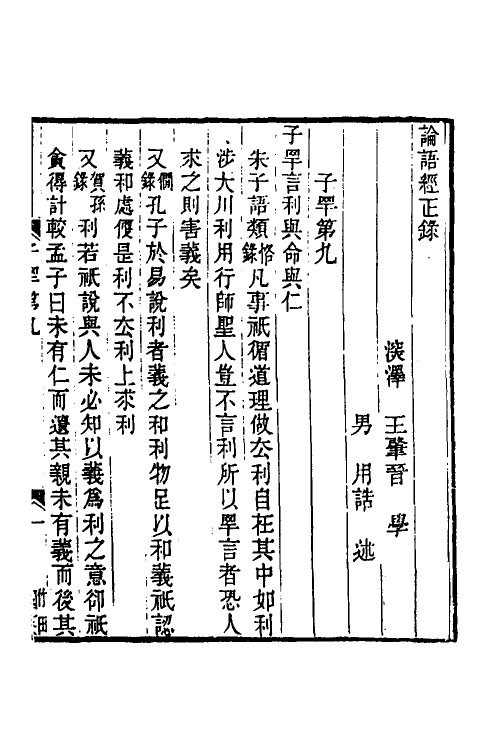 論語經正錄
浹澤 王肇晉 學
男 用誥 述
子罕第九
子罕言利與命與仁
朱子語類恪錄凡事祇循道理做厺利自在其中如利
涉大川利用行師聖人豈不言利所以罕言者恐人
求之則害義矣
又僩錄孔子於易說利者義之和利物足以和義祇認
義和處便是利不厺利上求利
又賀孫錄利若祇說與人未必知以義爲利之意卻祇
貪得計較孟子曰未有仁而遺其親未有義而後其
子罕第九
一